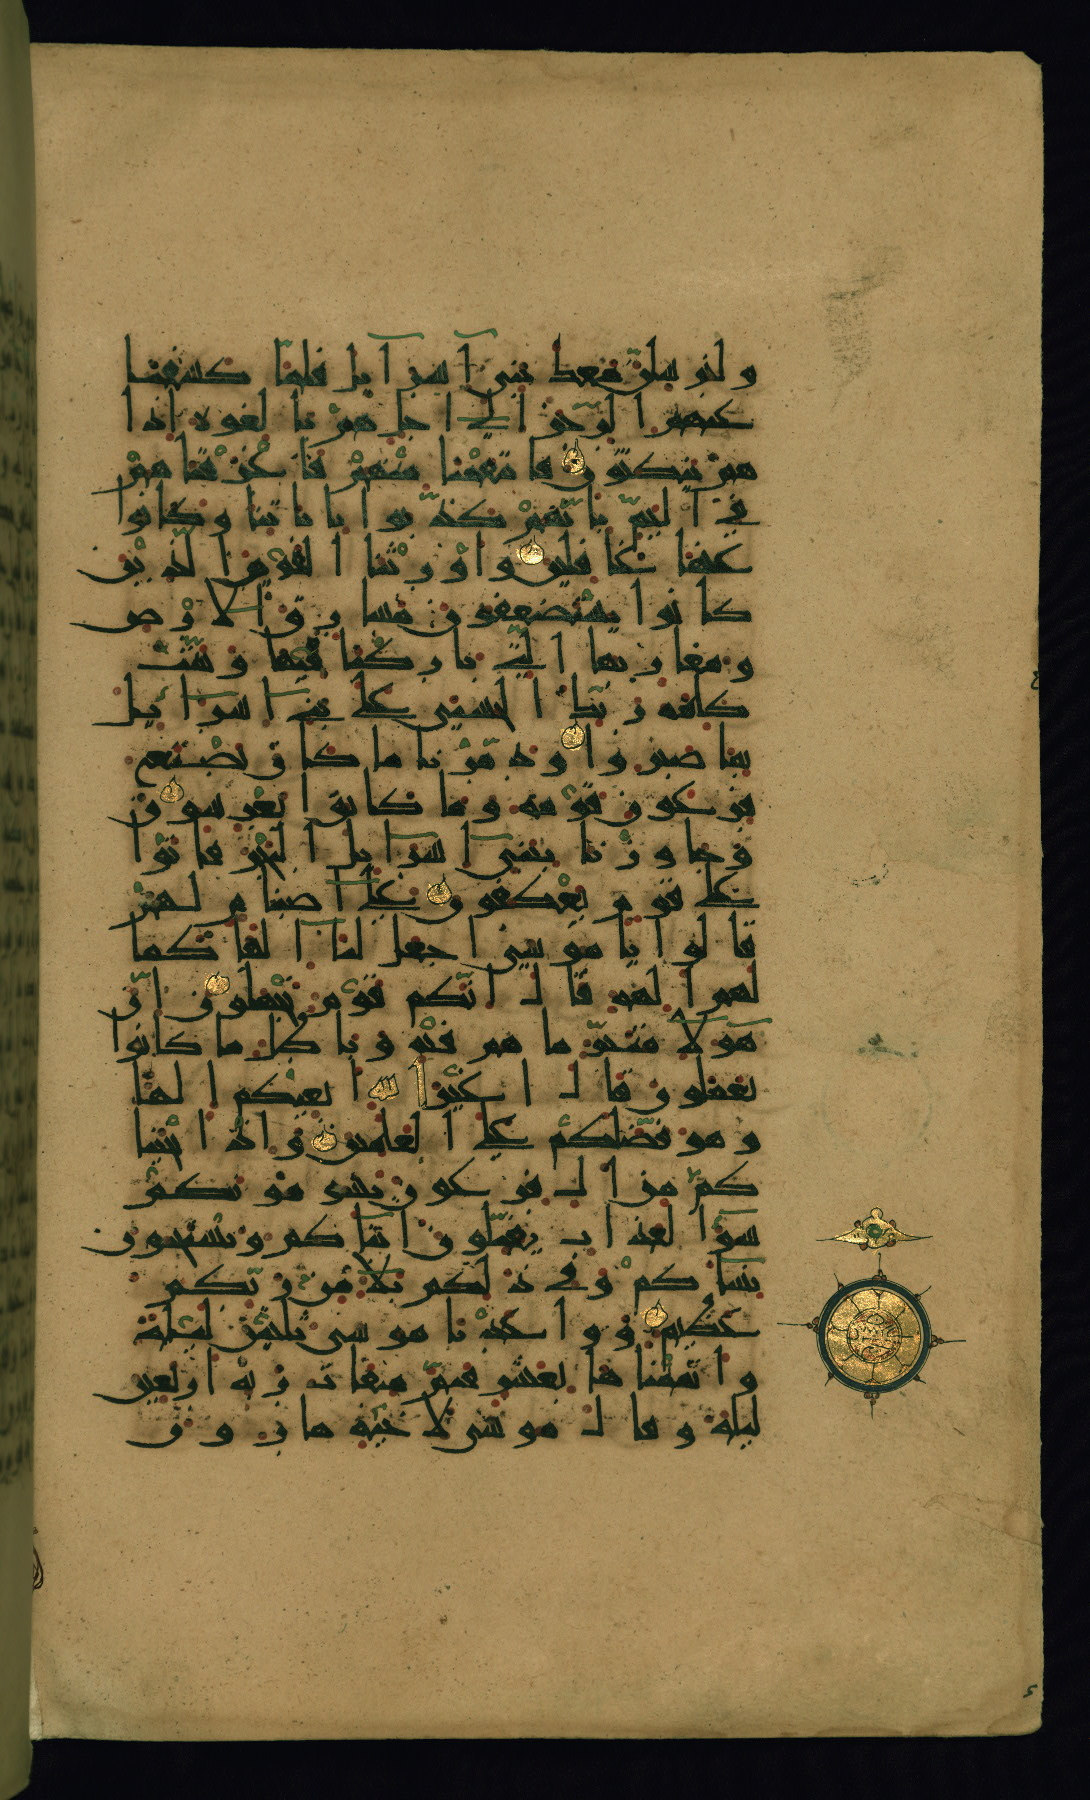 ولنرسلن معك بني اسرآيل فلما كشفنا
عنهم الرجز الى اجل هم بالغوه اذا
هم ينكثون فانتقمنا منهم فاغرقناهم
في اليم بانهم كذبوا باياتنا وكانوا
عنها غافلين واورثنا القوم الذين
كانوا يستضعفون مشارق الارض
ومغاربها التي باركنا فيها وتمت
كلمة ربك الحسنى على بني اسرآئيل
بما صبروا ودمرنا ما كان يصنع
فرعون وقومه وما كانوا يعرشون
وجاوزنا ببني اسرآيل البحر فاتوا
على قوم يعكفون على اصنام لهم
قالوا يا موسى اجعل لنا الها كما
لهم الهة قال انكم قوم تجهلون ان
هولآ متبر ما هم فيه وباطل ما كانوا
يعملون قال اغير الله ابغيكم الها
وهو فضلكم على العالمين واذ انجينا
كم من ال فرعون يسومونكم
سوء العذاب يقتلون ابنآكم ويستحيون
نسآكم وفي ذلكم بلآ من ربكم
عظيم وواعدنا موسى ثلثين ليلة
واتممناها بعشر فتم ميقات ربه اربعين
ليلة وقال موسى لاخيه هارون